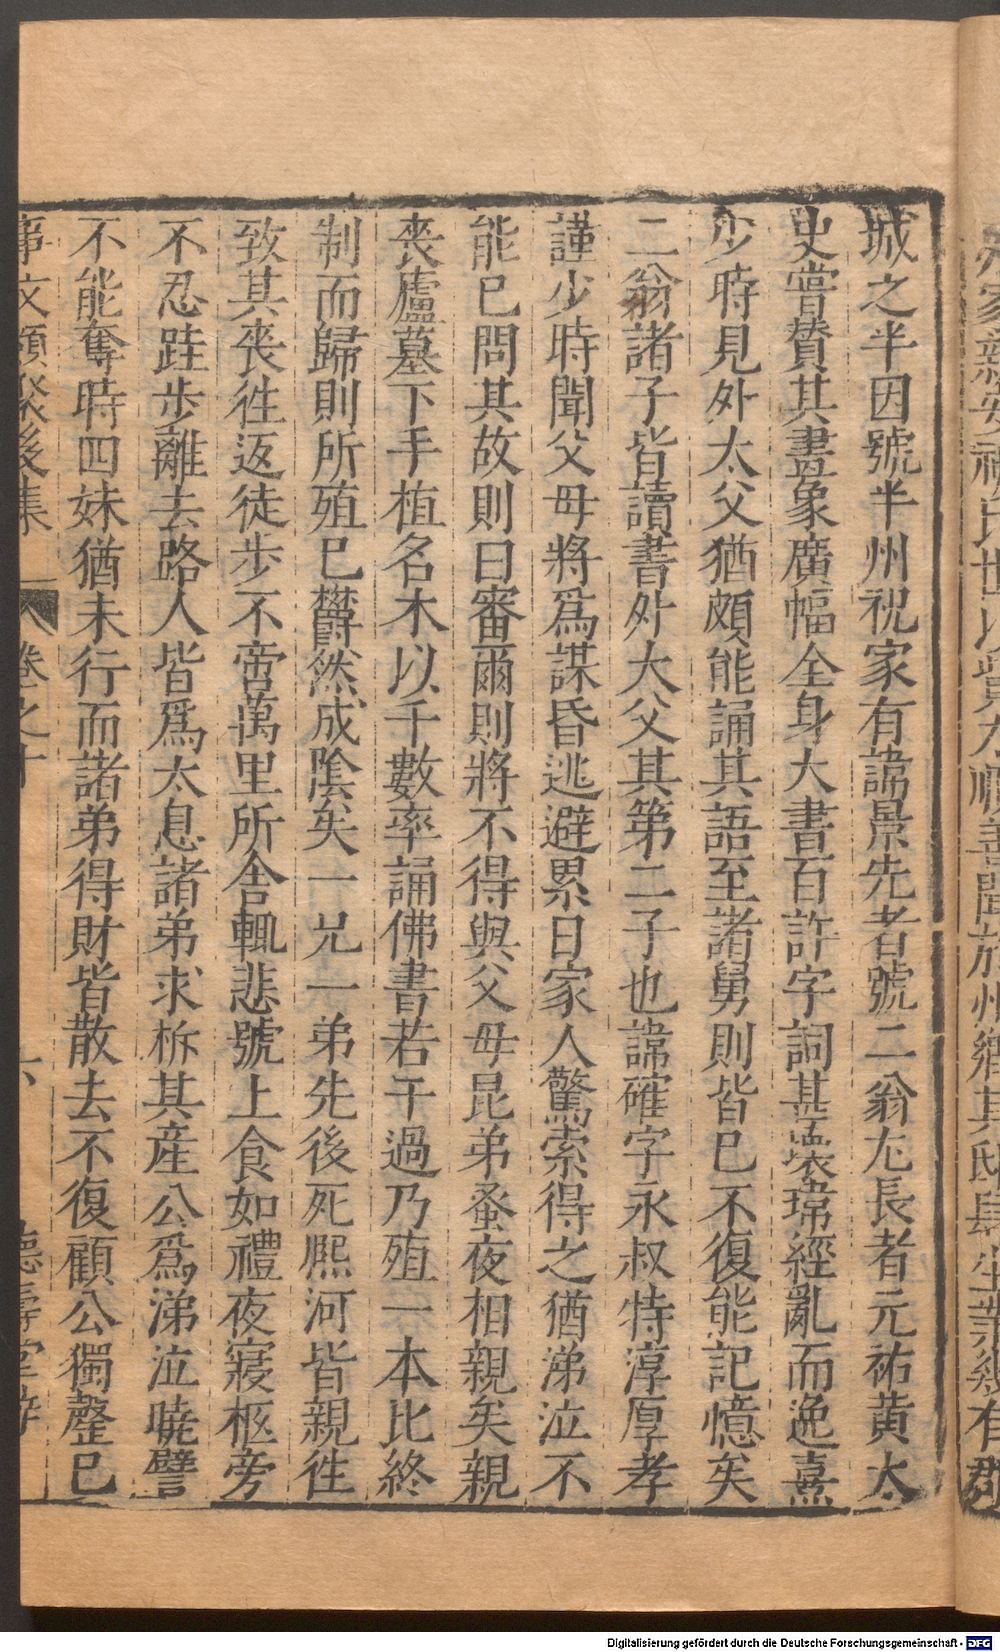 城之半因號半州祝家有諱景先者號二翁尤長者元祐黄太
史嘗贊其畫象廣幅全身大書百許字詞甚瓌瑋經亂而逸熹
少時見外太父猶頗能誦其語至諸舅則皆已不復能記憶矣
二翁諸子皆讀書外大父其第二子也諱確字永叔特淳厚孝
謹少時聞父母將爲謀昏逃避累日家人驚索得之猶涕泣不
能已問其故則曰審爾則將不得與父母昆弟蚤夜相親矣親
喪廬墓下手植名木以千數率誦佛書若干過乃殖一本比終
制而歸則所殖已欝然成陰矣一兄一弟先後死熙河皆親徃
致其喪徃返徒步不啻萬里所舍輒悲號上食如禮夜寢柩旁
不忍跬步離去路人皆爲太息諸弟求柝其産公爲涕泣曉譬
不能奪時四妹猶未行而諸弟得財皆散去不復顧公獨罄已
事文類聚後集 卷之十 六 德壽堂梓
Digitalisierung gefördert durch die Deutsche Forschungsgemeinschaft - DFG